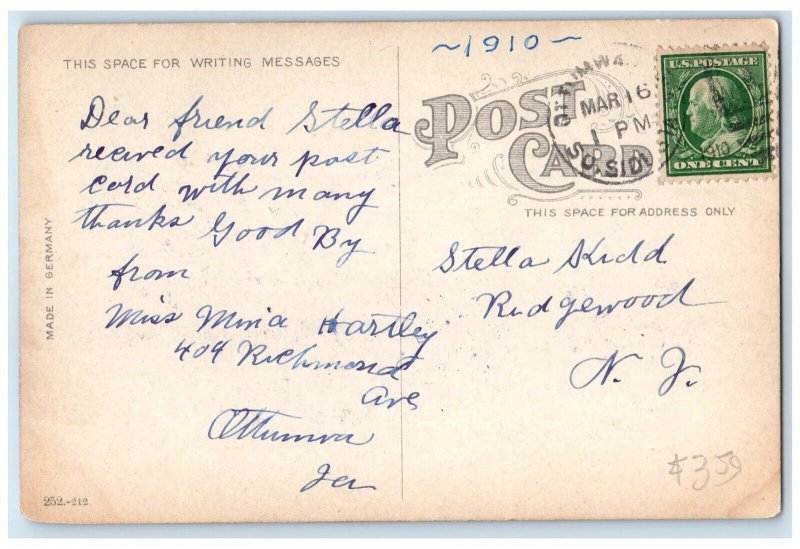 ~1910~
THIS SPACE FOR WRITING MESSAGES
POST CARD
OTTUMWA
MAR 16
1 PM
1910
SO. SIDE
U.S. POSTAGE
ONE CENT
THIS SPACE FOR ADDRESS ONLY
MADE IN GERMANY
Dear friend Stella
recived your post
cord with many
thanks Good By
from
Miss Mina Hartley
404 Richmond
Ave
Ottumwa
Ia
Stella Kidd
Ridgewood
N. J.
252.-212
$3.50